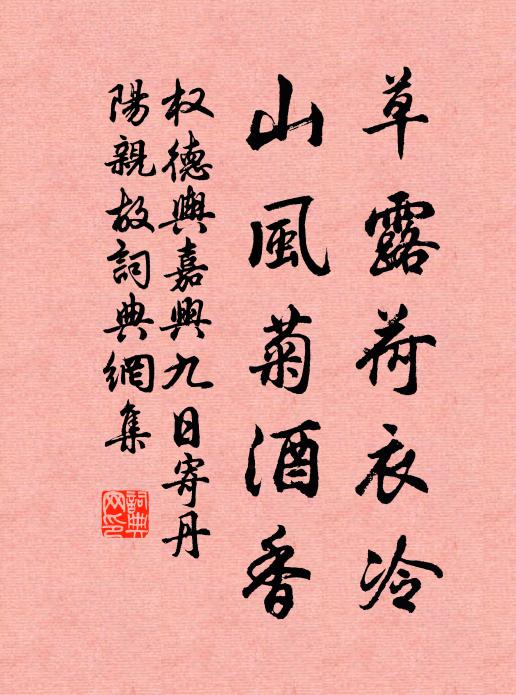 草露荷衣冷
山風菊酒香
权德輿嘉興九日寄丹
陽親故詞典網集
詞典網印